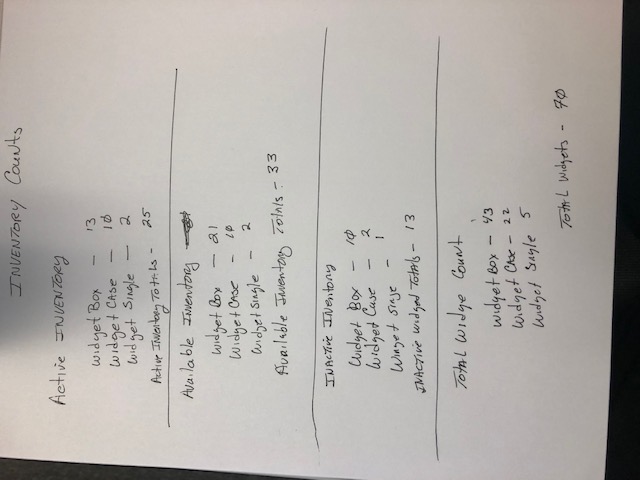 INVENTORY Counts
Active INVENTORY
widget Box - 13
widget Case - 10
widget Single - 2
Active Inventory Totals - 25
Available Inventory
widget Box - 21
widget Case - 10
widget single - 2
Available Inventory Totals - 33
INActive INventory
Widget Box - 10
Widget Case - 2
Winget single - 1
INActive widget Totals - 13
Total Widge Count
widget Box - 43
Widget Case - 22
Widget Single 5
Total widgets - 70